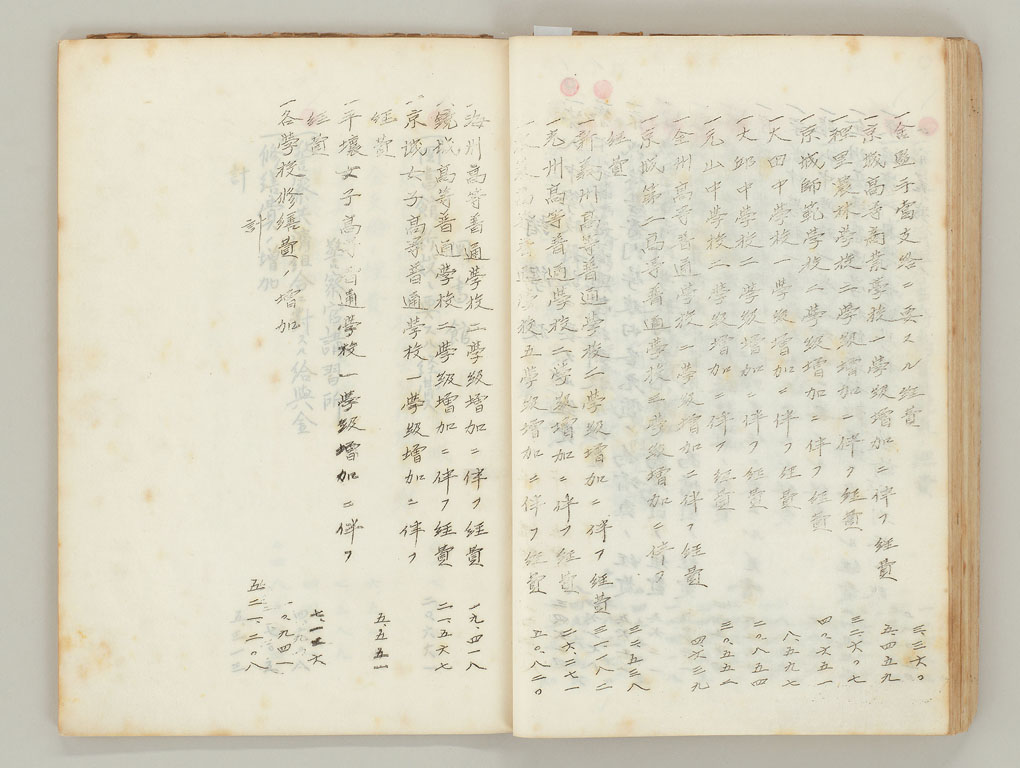 一舎監手當支給ニ要スル經費 三、三六〇
一京城高等商業學校一學級增加ニ伴フ經費 五、四五九
一裡里農林學校二學級增加ニ伴フ經費 三二、六〇七
一京城師範學校二學級增加ニ伴フ經費 四〇、六五一
一大田中學校一學級增加ニ伴フ經費 八、五九七
一大邱中學校二學級增加ニ伴フ經費 二〇、八五四
一元山中學校二學級增加ニ伴フ經費 三〇、五五二
一全州高等普通學校二學級增加ニ伴フ經費
一京城第二高等普通學校二學級增加ニ伴フ
經費 三三、五三八
一新義州高等普通學校二學級增加ニ伴フ經費
一光州高等普通學校二學級增加ニ伴フ經費 二六、二七一
高等普通學校五學級增加ニ伴フ經費 五〇、八二〇
一海州高等普通學校二學級增加ニ伴フ經費 一九、四一八
一鏡城高等普通學校二學級增加ニ伴フ經費 二一、五六七
一京城女子高等普通學校一學級增加ニ伴フ
經費 五、五五一
一平壤女子高等普通學校一學級增加ニ伴フ
經費 七、一二六
一各學校修繕費ノ增加 一〇、九四一
計 五二一、二〇八